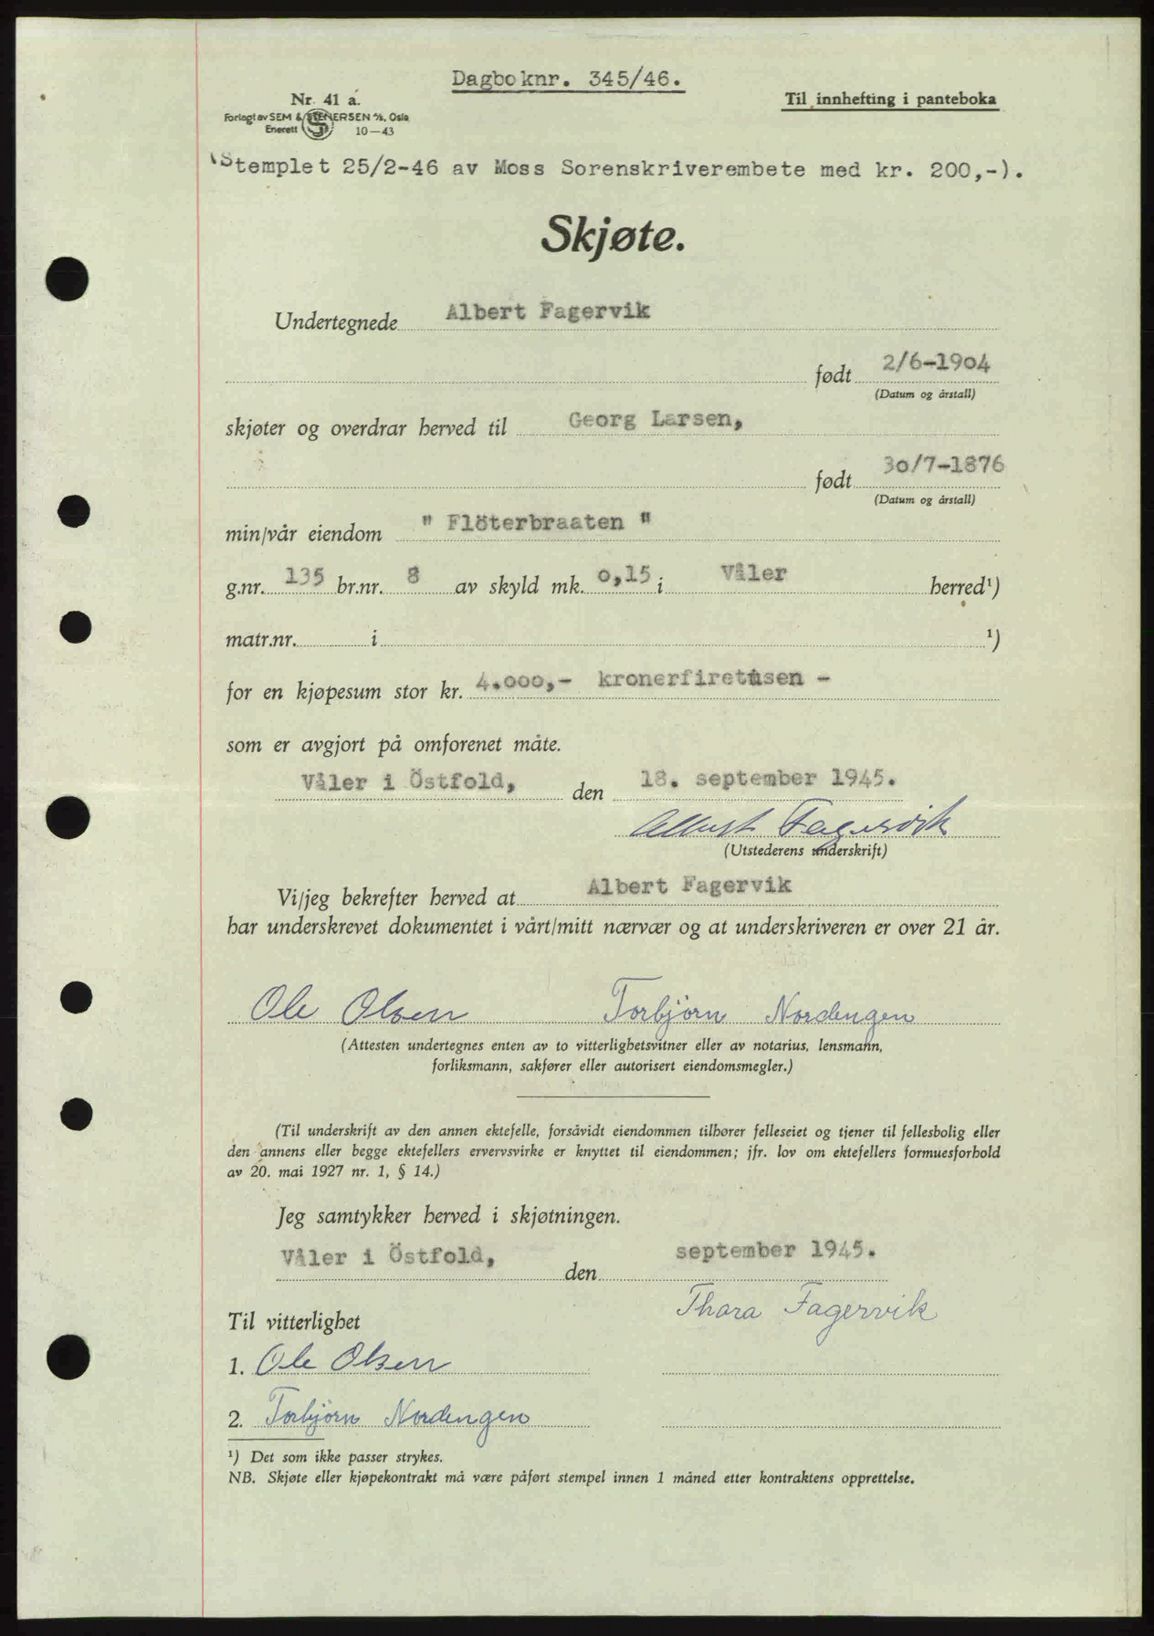 Dagboknr. 345/46.
Nr. 41 a.
Til innhefting i panteboka
Forlagt av SEM & STENERSEN A/S, Oslo
Enerett 10-43
(Stemplet 25/2-46 av Moss Sorenskriverembete med kr. 200,-).
Skjøte.
Undertegnede Albert Fagervik
født 2/6-1904
(Datum og årstall)
skjøter og overdrar herved til Georg Larsen,
født 30/7-1876
(Datum og årstall)
min/vår eiendom " Flöterbraaten "
g.nr. 135 br.nr. 8 av skyld mk. 0,15 i Våler herred¹)
matr.nr. i ¹)
for en kjøpesum stor kr. 4.000,- kronerfiretusen -
som er avgjort på omforenet måte.
Våler i Östfold, den 18. september 1945.
Albert Fagervik
(Utstederens underskrift)
Vi/jeg bekrefter herved at Albert Fagervik
har underskrevet dokumentet i vårt/mitt nærvær og at underskriveren er over 21 år.
Ole Olsen Torbjörn Nordengen
(Attesten undertegnes enten av to vitterlighetsvitner eller av notarius, lensmann,
forliksmann, sakfører eller autorisert eiendomsmegler.)
(Til underskrift av den annen ektefelle, forsåvidt eiendommen tilhører felleseiet og tjener til fellesbolig eller
den annens eller begge ektefellers ervervsvirke er knyttet til eiendommen; jfr. lov om ektefellers formuesforhold
av 20. mai 1927 nr. 1, § 14.)
Jeg samtykker herved i skjøtningen.
Våler i Östfold, den september 1945.
Thora Fagervik
Til vitterlighet
1. Ole Olsen
2. Torbjörn Nordengen
¹) Det som ikke passer strykes.
NB. Skjøte eller kjøpekontrakt må være påført stempel innen 1 måned etter kontraktens opprettelse.